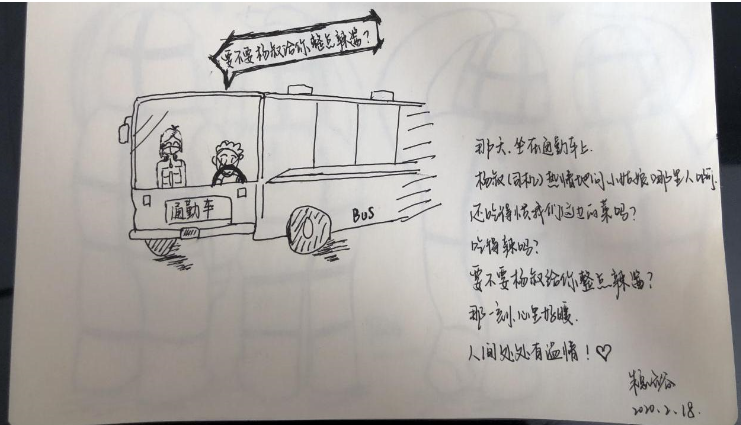 要不要杨叔给你整点辣酱？
通勤车
BUS
那天，坐在通勤车上.
杨叔(司机)热情地问，小姑娘哪里人啊，
还吃得惯我们这边的菜吗？
吃得辣吗？
要不要杨叔给你整点辣酱？
那一刻，心里好暖.
人间处处有温情！♡
2020.2.18.